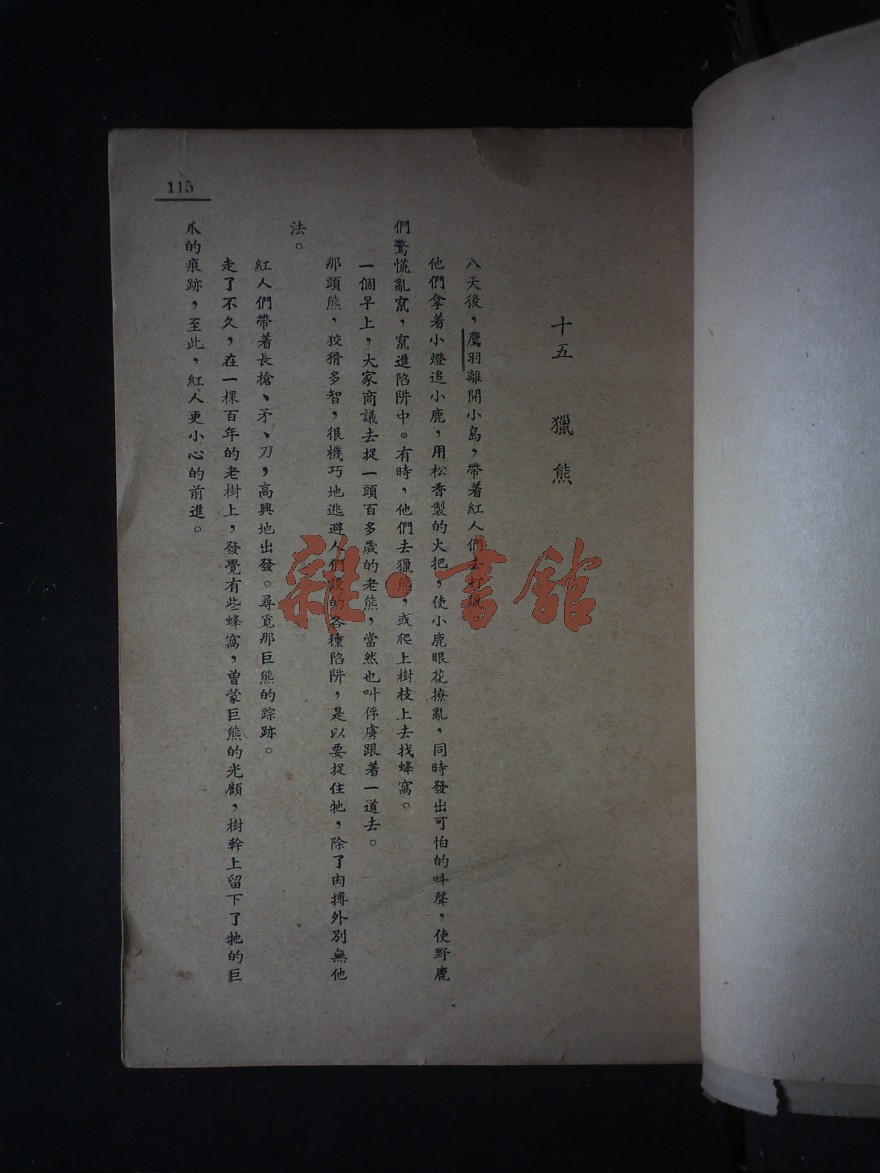 115
十五　獵熊
八天後，鷹羽離開小島，帶着紅人們去打獵。
他們拿着小燈追小鹿，用松香製的火把，使小鹿眼花撩亂，同時發出可怕的叫聲，使野鹿
們驚慌亂竄，竄進陷阱中。有時，他們去獵熊，或爬上樹枝上去找蜂窩。
一個早上，大家商議去捉一頭百多歲的老熊，當然也叫俘虜跟着一道去。
那頭熊，狡猾多智，很機巧地逃避人們設的各種陷阱，是以要捉住牠，除了肉搏外別無他
法。
紅人們帶着長槍、矛、刀，高興地出發。尋覓那巨熊的踪跡。
走了不久，在一棵百年的老樹上，發覺有些蜂窩，曾蒙巨熊的光顧，樹幹上留下了牠的巨
爪的痕跡，至此，紅人更小心的前進。
雜·書館